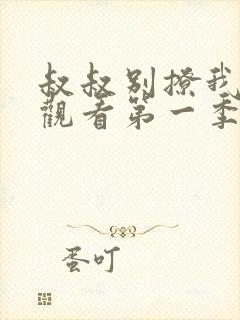 叔叔别撩我
觀看第一季
蛋叮